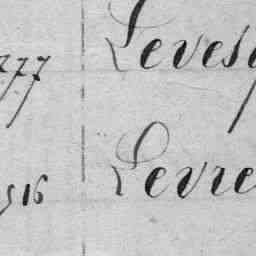 777 Levesq
516 Levre